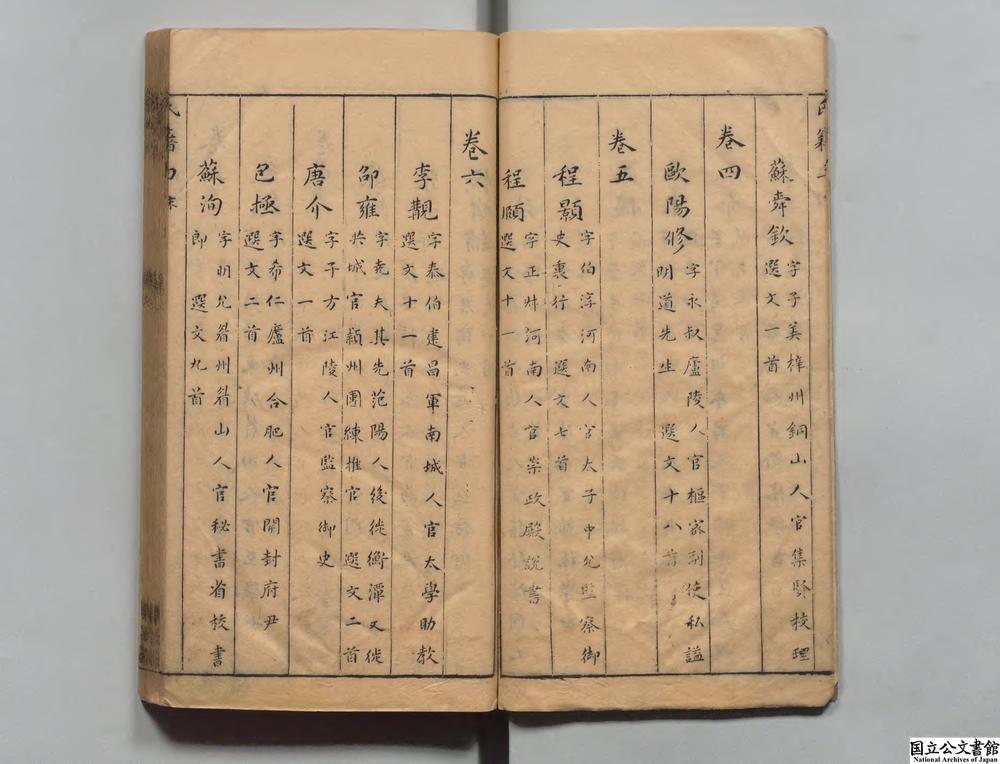 蘇舜欽 字子美梓州銅山人官集賢校理
選文一首
卷四
歐陽修 字永叔廬陵人官樞密副使私謚
明道先生 選文十八首
卷五
程顥 字伯淳河南人官太子中允監察御
史裏行 選文七首
程頤 字正叔河南人官崇政殿說書
選文十一首
卷六
李覯 字泰伯建昌軍南城人官太學助教
選文十一首
邵雍 字堯夫其先范陽人後徙衡漳又徙
共城官潁州團練推官 選文二首
唐介 字子方江陵人官監察御史
選文一首
包拯 字希仁廬州合肥人官開封府尹
選文二首
蘇洵 字明允眉州眉山人官秘書省校書
郎 選文九首
国立公文書館
National Archives of Japan